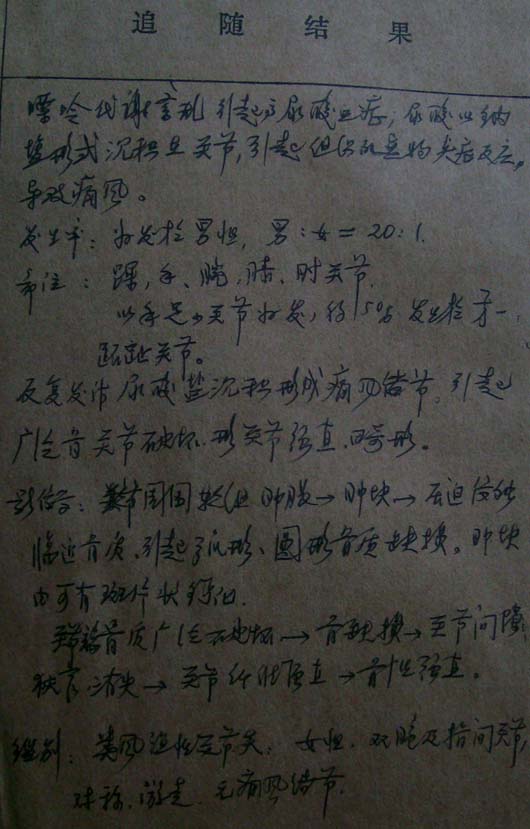 追随结果
嘌呤代谢紊乱引起高尿酸血症;尿酸以钠
盐形式沉积在关节,引起组织的异物炎症反应,
导致痛风。
发生率:好发于男性,男:女=20:1.
部位:踝、手、腕、膝、肘关节.
以手足小关节好发,约50%发生于第一
跖趾关节。
反复发作尿酸盐沉积形成痛风结节,引起
广泛骨关节破坏.形关节强直.畸形。
影像学:关节周围软组肿胀→肿块→压迫侵蚀
临近骨质.引起弧形、圆形骨质缺损。肿块
内可有斑片状钙化.
骨质广泛破坏→骨缺损→关节间隙
狭窄消失→关节纤维强直→骨性强直。
鉴别:类风湿性关节炎:女性.双腕及指间关节,
对称.游走.无痛风结节.